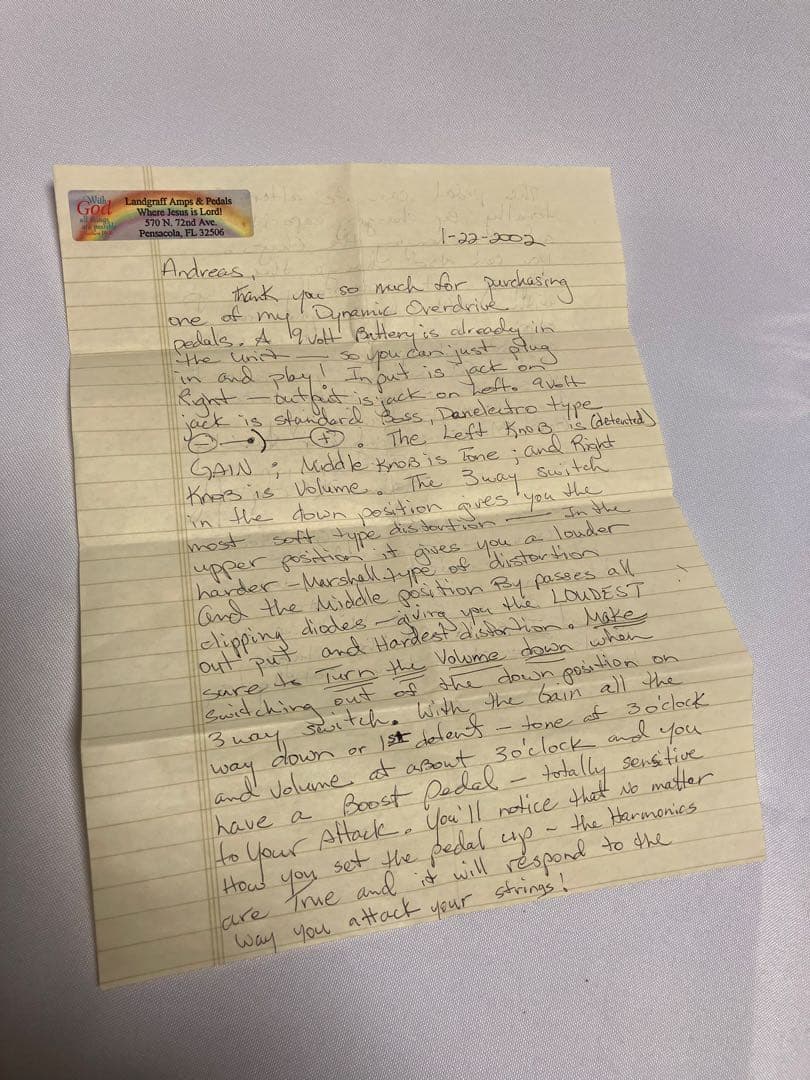 With
God
all things
are possible
Landgraff Amps & Pedals
Where Jesus is Lord!
570 N. 72nd Ave.
Pensacola, FL 32506
1-22-2002
Andreas,
Thank you so much for purchasing
one of my Dynamic Overdrive
pedals. A 9 volt Battery is already in
the unit — so you can just plug
in and play! Input is jack on
Right — output is jack on Left. 9 volt
jack is standard Boss, Danelectro type
(−)—•)—(+) . The Left Knob is (detented)
GAIN ; Middle Knob is Tone ; and Right
Knob is Volume. The 3 way switch
in the down position gives you the
most soft type distortion — In the
upper position it gives you a louder
harder - Marshall type of distortion
and the Middle position By passes all
clipping diodes - giving you the LOUDEST
out put and Hardest distortion. Make
sure to Turn the Volume down when
switching out of the down position on
3 way switch. With the Gain all the
way down or 1st detent - tone at 3 o'clock
and Volume at about 3 o'clock and you
have a Boost Pedal - totally sensitive
to Your Attack. You'll notice that No matter
How you set the pedal up - the Harmonics
are True and it will respond to the
way you attack your strings!